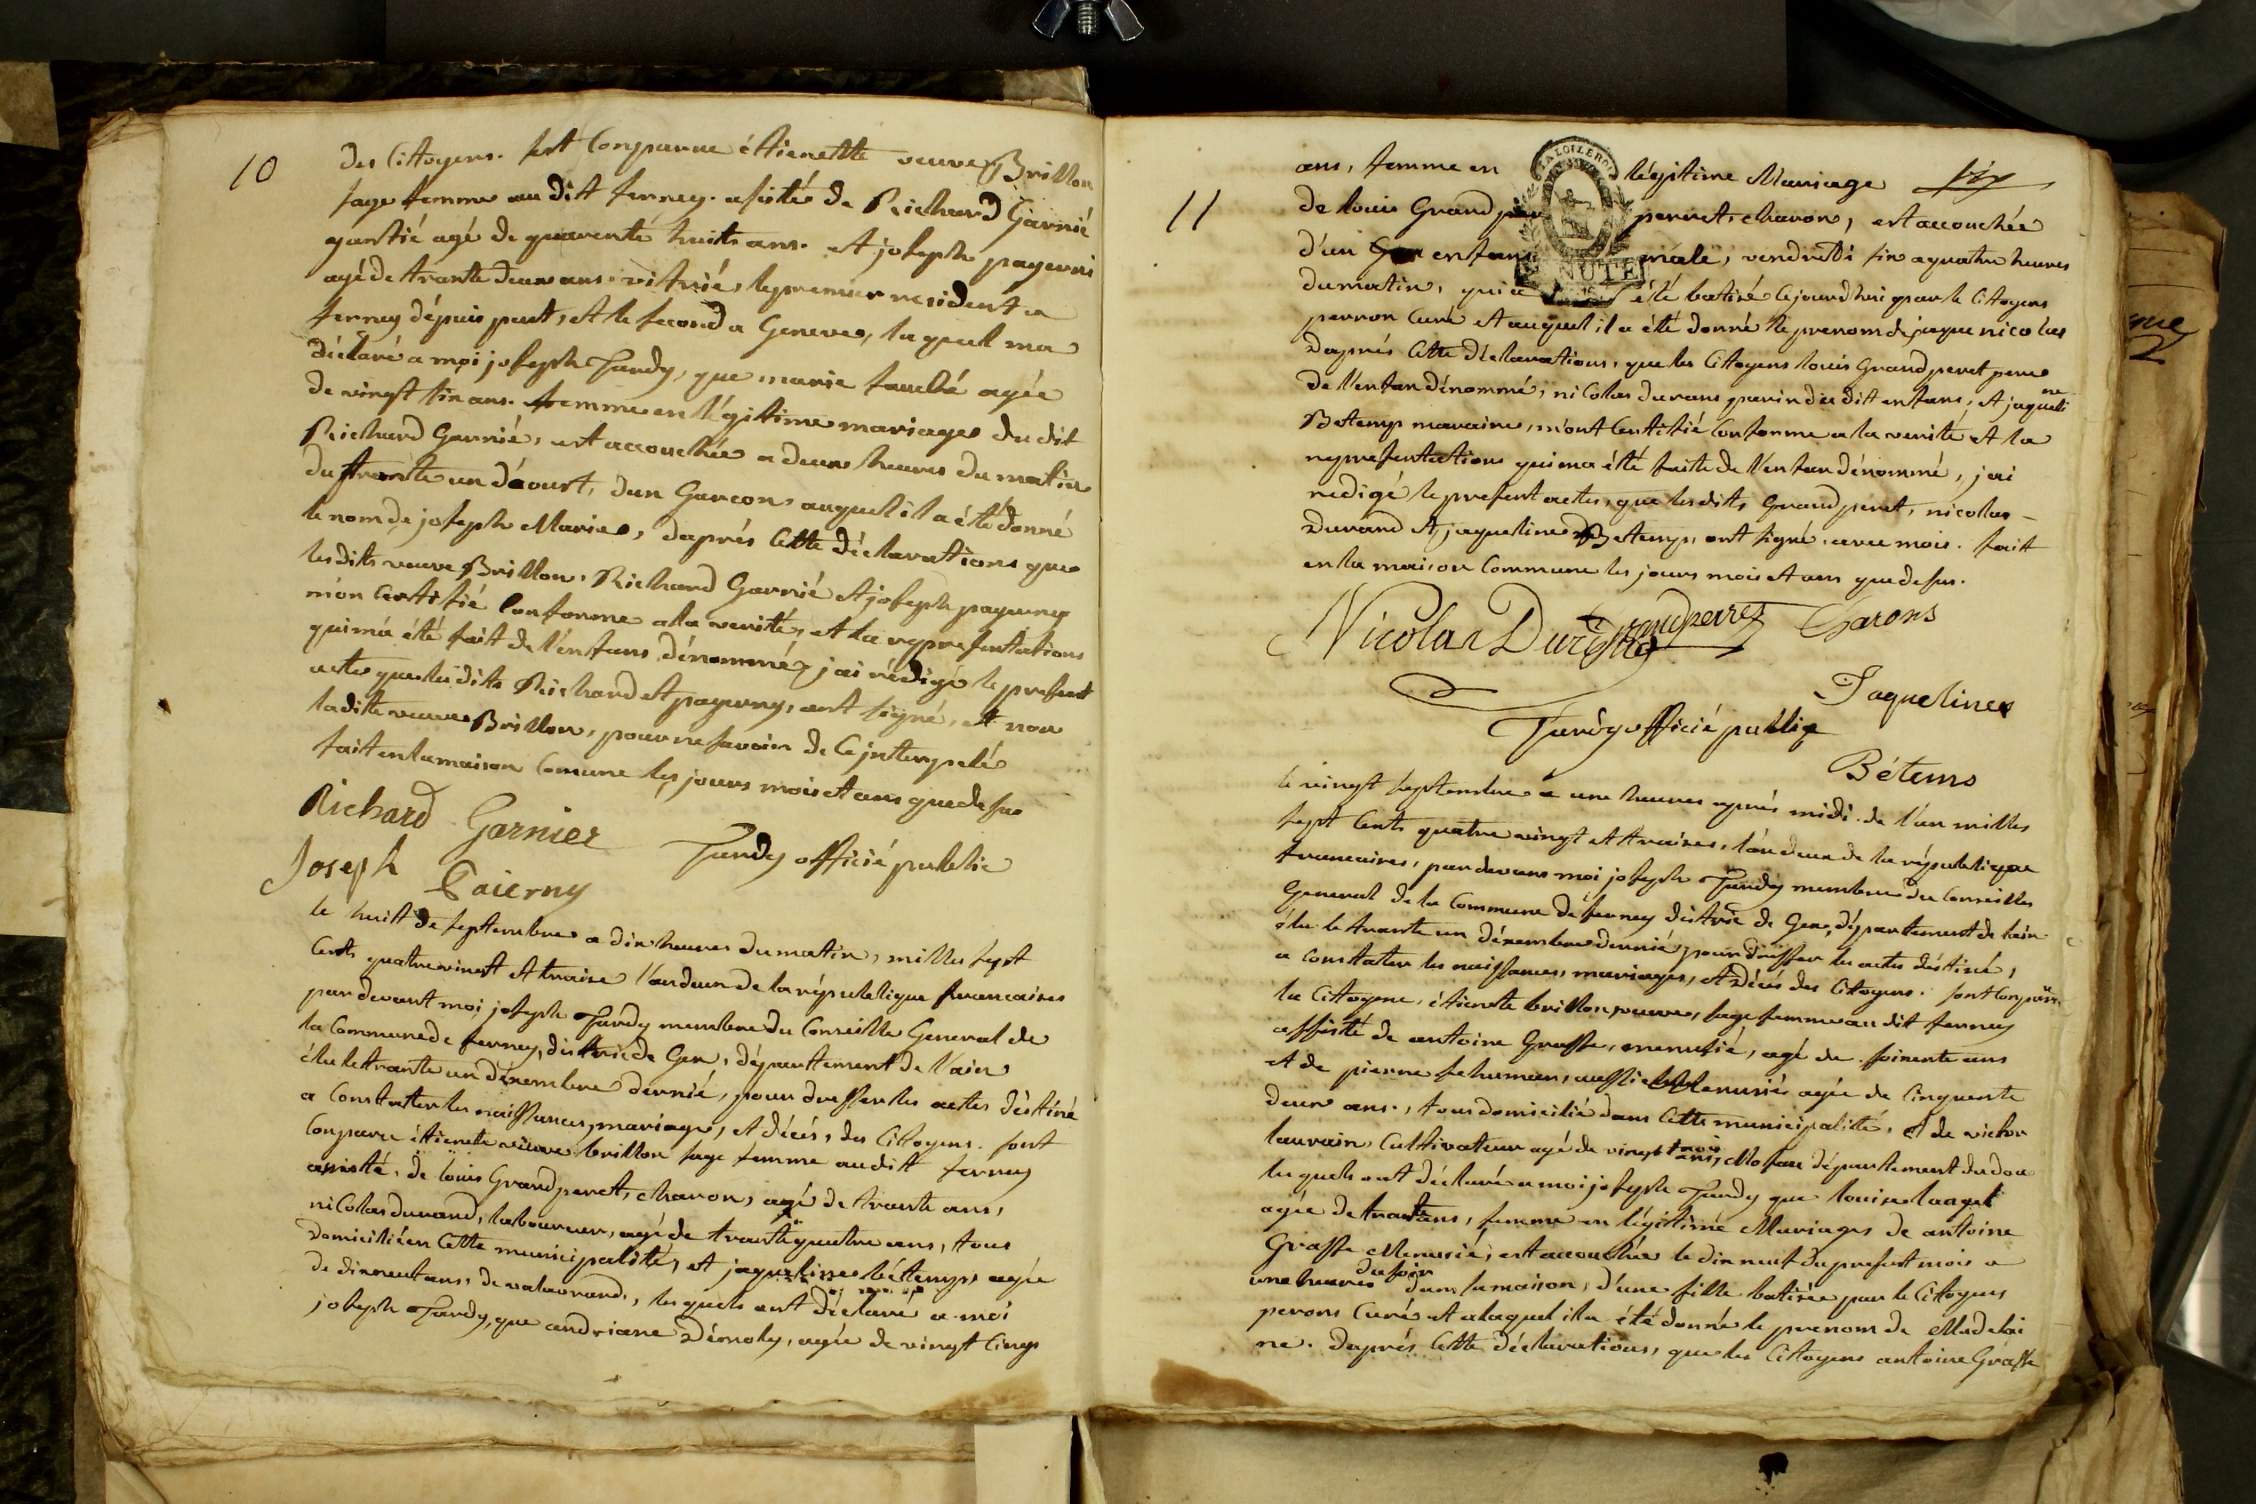 10
des Citoyens. sest Conparue étienette veuve Brillon
sage femme au dit ferney. asisté de Richard Garnié
gantié agé de quarente huits ans. et joseph payerni
agé de trante deux ans vitrié, le premier resident a
ferney dépuis peut, et le second a Geneve, laquel ma
déclaré a moi joseph Tardy, que marie agée
de vingt six ans. femme en l'égitime mariage du dit
Richard Garnié, est accouchée a deux heures du matin
du trante un d'aoust, dun Garcon auquel il a été donné
le nom de joseph Marie, daprés Cette déclarations que
lesdits veuve Brillon, Richard Garnié et joseph payerny
m'on Certifié Conforme a la verité, et la representations
qui m'a été fait de l'enfans dénommé, j'ai rédigé le present
acte que lesdits Richard et payerny, ont signé, et non
laditte veuve Brillon, pour ne savoir de Ce jnterpelé
fait en la maison Comune les jours mois et ans que desus
Richard Garnier
Tardy officié public
Joseph Paierny
le huit de septembre a dix heures du matin, milles sept
Cents quatrevingt et traise l'an deux de la république francaises
par devant moi joseph Tardy membre du Conseille General de
la Commune de ferney, districde Gex, département de l'ain
élu le trante un déxembre dernié, pour dresser les actes déstiné
a Constater les naissances, mariages, et décés, des Citoyens. sont
Conparue étienete veuve brillon sage femme audit ferney
assisté, de louis Grandperet, charon, agé de trante ans,
nicolas durand, laboureur, agé de trante quatre ans, tous
domicilié en Cette municipalité, et jaqueline bétemps agée
de dixneuf ans, de valavrand, les quels ont déclaré a moi
joseph Tardy, que andriane Démoly, agée de vingt Cinq
11
ans, femme en légitime Mariage
de louis Grand perret, charon, est accouchée
d'un enfans mâle, vendredi six a quatre heures
du matin, qui a été batisé Cejourdhui par le Citoyens
perron Curé et auquel il a été donné le prenom de jaque nicolas
Daprés Cette déclarations, que les Citoyens louis Grandperet pere
de l'enfan dénommé, nicolas durans parin du dit enfans, et jaqueline
Betemp maraine, m'ont Certifié Conforme a la verité et la
representations qui ma été faite de l'enfan dénommé, jai
redigé le present actes, que lesdits Grandperet, nicolas
Durand et jaqueline Betemps, ont signé avec mois. fait
en la maison Commune les jours mois et ans que desus.
Nicolas Durand Grandperret Charons
Jaqueline
Tardy officié publiq
Bétems
le vingt septembre a une heures aprés midi de l'an milles
sept Cents quatre vingt et traises, l'an deux de la république
francaises, par devans moi joseph Tardy membre du Conseilles
General de la Commune de ferney distric de Gex, département de lain
élu le trante un déxembre dernié, pour dresser les actes déstiné,
a Constater les naissances, mariages, et Décés des Citoyens. sont Conparue
la Citoyene, étienete brillon veuve, sage femme au dit ferney
assisté de antoine Grasse, menusié, agé de soixente ans
et de pierre sehumen, aussi Menusié agée de Cinquente
deux ans, tous domicilié dans Cette municipalité, et de victor
lauvain Cultivateur agé de vingt trois ans, département du dou
les quels ont déclaré a moi joseph Tardy que louise
agée de trante ans, femme en légitime Mariages de antoine
Grasse Menusié, est accouchée le dixneuf du present mois a
une heures du soir dans la maison, d'une fille batisée par le Citoyens
perons Curé et alaquel il a été donné le prenom de Madelai
ne. Daprés Cette déclarations, que les Citoyens antoine Grasse